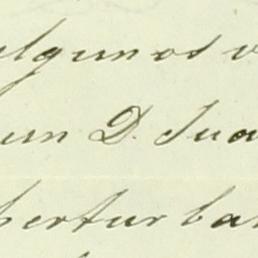 algunos v
un D. Jua
perturba